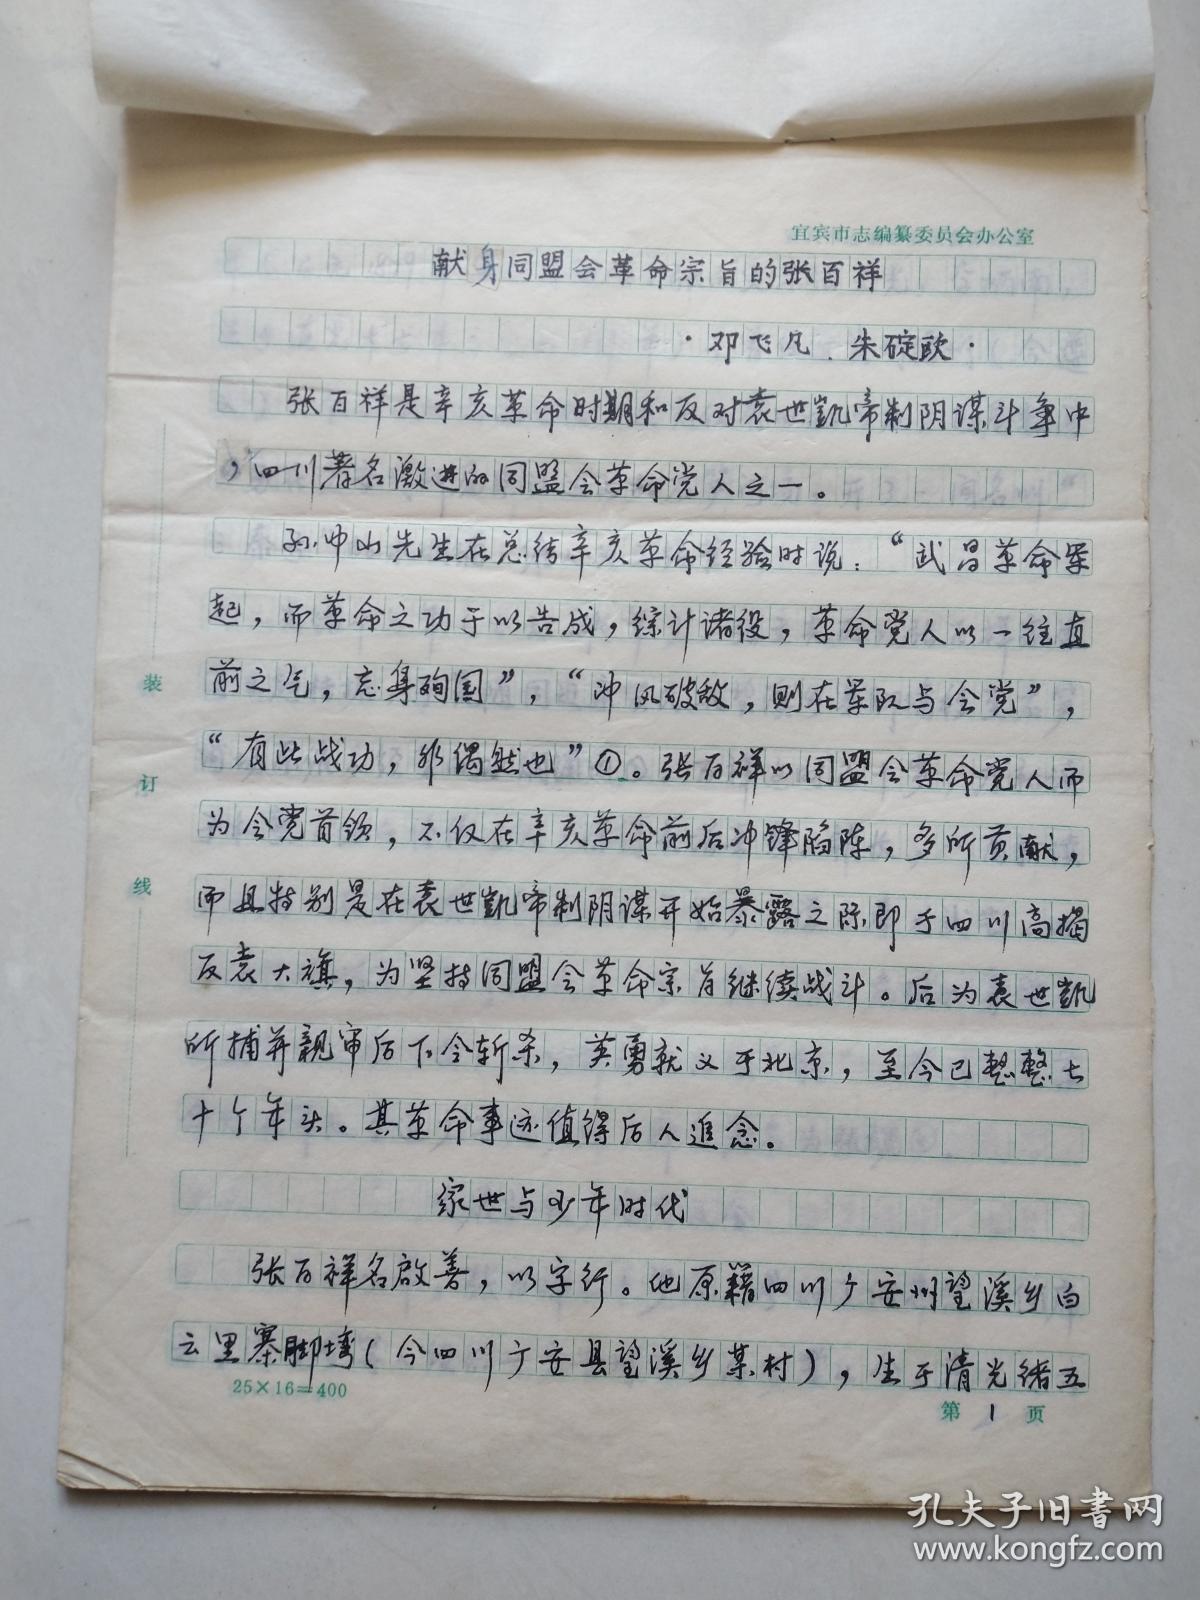 宜宾市志编纂委员会办公室
献身同盟会革命宗旨的张百祥
·邓飞凡、朱碇欧·
张百祥是辛亥革命时期和反对袁世凯帝制阴谋斗争中
，四川著名激进的同盟会革命党人之一。
孙中山先生在总结辛亥革命经验时说：“武昌革命军
起，而革命之功于以告成，综计诸役，革命党人以一往直
前之气，忘身殉国”，“冲风破敌，则在军队与会党”，
“有此战功，非偶然也”①。张百祥以同盟会革命党人而
为会党首领，不仅在辛亥革命前后冲锋陷阵，多所贡献，
而且特别是在袁世凯帝制阴谋开始暴露之际即于四川高揭
反袁大旗，为坚持同盟会革命宗旨继续战斗。后为袁世凯
所捕并亲审后下令斩杀，英勇就义于北京，至今已整整七
十个年头。其革命事迹值得后人追念。
家世与少年时代
张百祥名启善，以字行。他原籍四川广安州望溪乡白
云里寨脚塆（今四川广安县望溪乡某村），生于清光绪五
装
订
线
25×16=400
第 1 页
孔夫子旧书网
www.kongfz.com